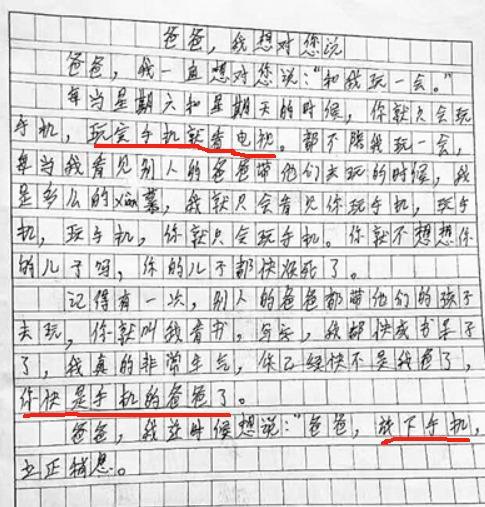 爸爸，我想对您说
爸爸，我一直想对您说："和我玩一会。"
每当星期六和星期天的时候，你就只会玩
手机，玩完手机就看电视。都不陪我玩一会，
每当我看见别人的爸爸带他们去玩的时候，我
是多么的xiàn慕，我就只会看见你玩手机，玩手
机，玩手机，你就只会玩手机。你就不想想你
的儿子吗，你的儿子都快烦死了。
记得有一次，别人的爸爸都带他们的孩子
去玩，你就叫我看书，写字，我都快成书呆子
了，我真的非常生气，你已经快不是我爸了，
你快是手机的爸爸了。
爸爸，我这时候想说："爸爸，放下手机，
立正稍息。